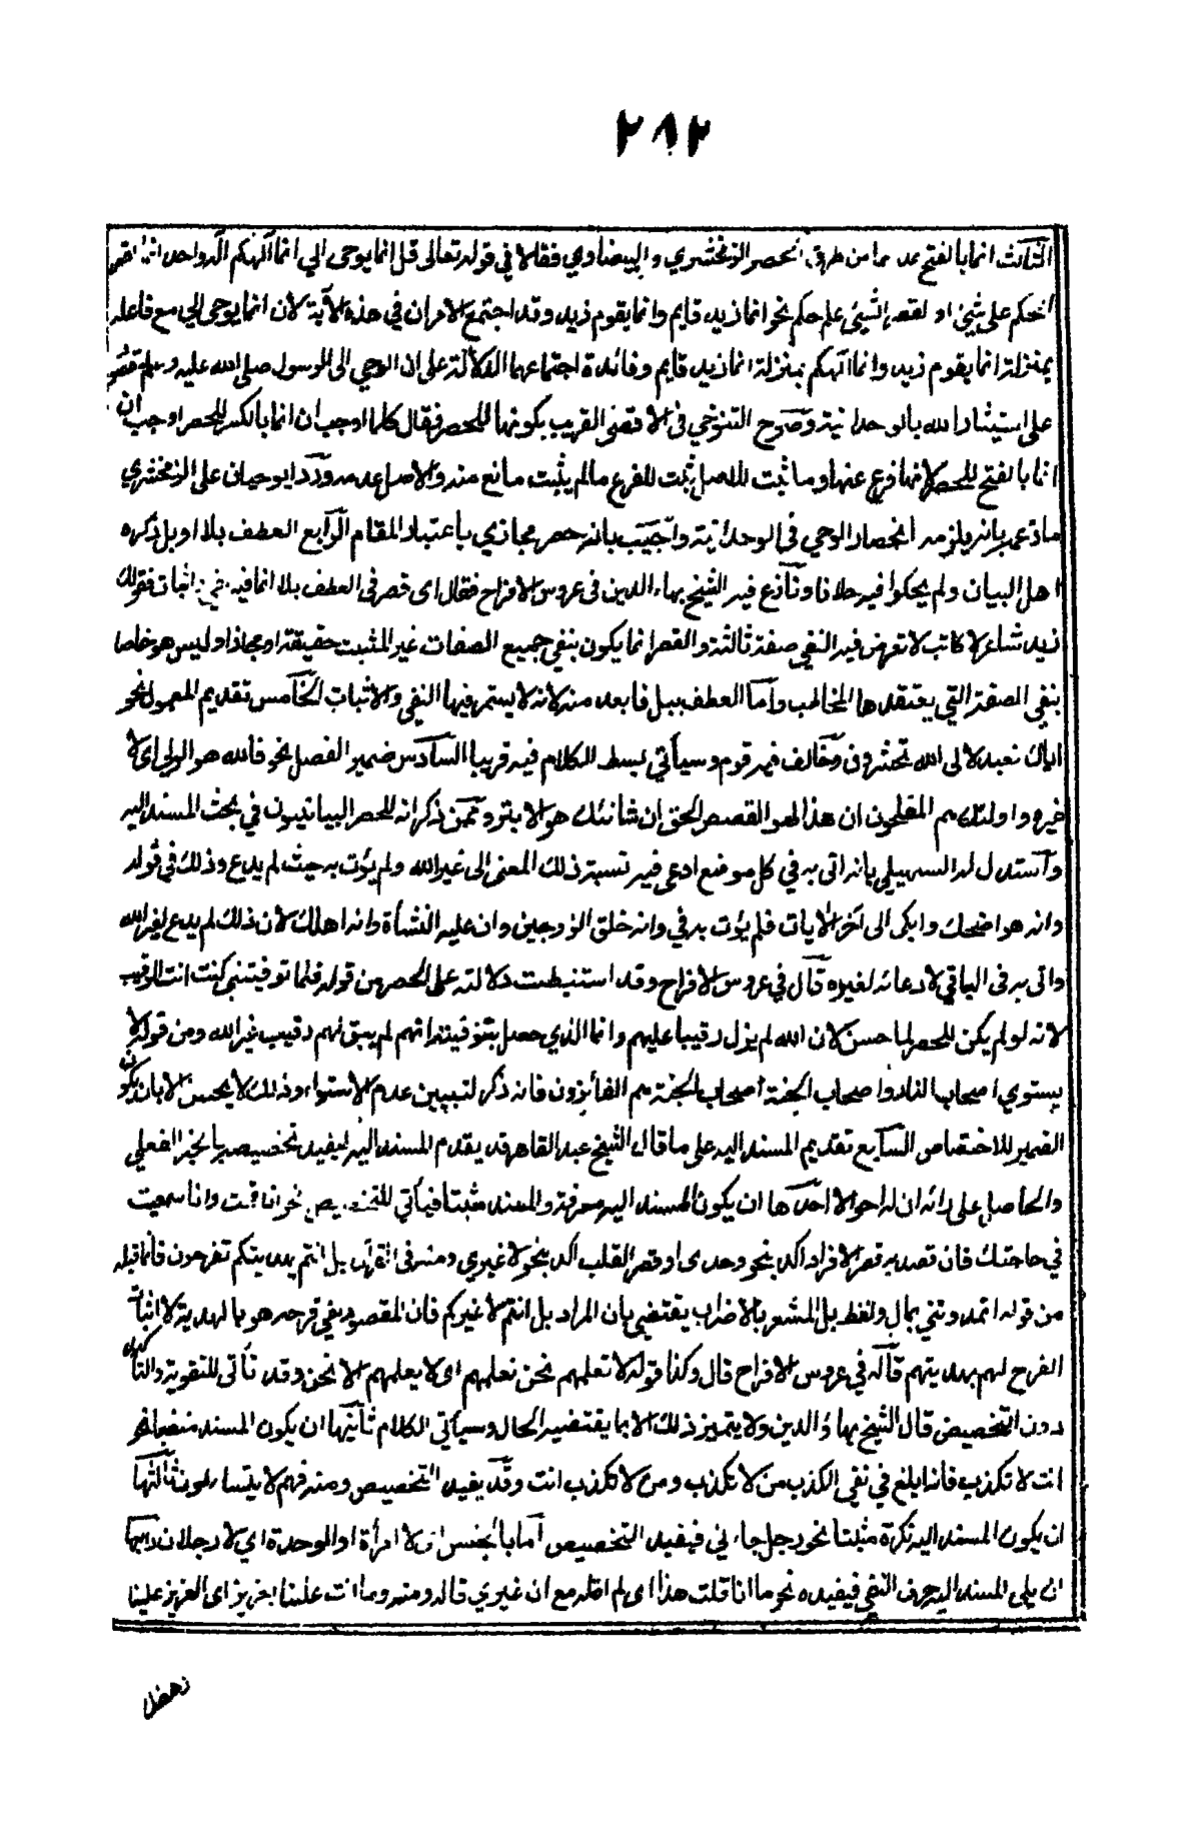 ٢٨٢
الثالث انما بالفتح عدها من طرق الحصر الزمخشري والبيضاوي فقالا في قوله تعالى قل انما يوحى الي انما الهكم اله واحد انما لقصر
الحكم على شيئ او لقصر الشيئ على حكم نحو انما زيد قايم وانما يقوم زيد وقد اجتمع الامران في هذه الآية لان انما يوحى الي مع فاعله
بمنزلة انما يقوم زيد وانما الهكم بمنزلة انما زيد قايم وفائدة اجتماعهما الدلالة على ان الوحي الى الرسول صلى الله عليه وسلم مقصور
على استيثار الله بالوحدانية وصرح التنوخي في الاقصى القريب بكونها للحصر فقال كلما اوجب ان انما بالكسر للحصر اوجب ان
انما بالفتح للحصر لانها فرع عنها وما ثبت للاصل ثبت للفرع مالم يثبت مانع منه والاصل عدمه ورد ابوحيان على الزمخشري
مازعمه بانه يلزمه انحصار الوحي في الوحدانية واجيب بانه حصر مجازي باعتبار المقام الرابع العطف بلا او بل ذكره
اهل البيان ولم يحكوا فيه خلافا ونازع فيه الشيخ بهاء الدين في عروس الافراح فقال اى قصر في العطف بلا انما فيه نفي واثبات فقولك
زيد شاعر لا كاتب لا تعرض فيه لنفي صفة ثالثة والقصر انما يكون بنفي جميع الصفات غير المثبت حقيقة او مجازا وليس هو خاصا
بنفي الصفة التي يعتقدها المخاطب واما العطف ببل فابعد منه لانه لا يستمر فيها النفي والاثبات الخامس تقديم المعمول نحو
اياك نعبد لالى الله تحشرون وخالف فيه قوم وسيأتي بسط الكلام فيه قريبا السادس ضمير الفصل نحو فالله هو الولي اى لا
غيره واولئك هم المفلحون ان هذا لهو القصص الحق ان شانئك هو الابتر وممن ذكر انه للحصر البيانيون في بحث المسند اليه
واستدل له السهيلي بانه اتى به في كل موضع ادعى فيه نسبة ذلك المعنى الى غير الله ولم يؤت به حيث لم يدع وذلك في قوله
وانه هو اضحك وابكى الى آخر الآيات فلم يؤت به في وانه خلق الزوجين وان عليه النشأة وانه اهلك لان ذلك لم يدع لغير الله
واتى به في الباقي لادعائه لغيره قال في عروس الافراح وقد استنبطت دلالته على الحصر من قوله فلما توفيتني كنت انت الرقيب
لانه لو لم يكن للحصر لما حسن لان الله لم يزل رقيبا عليهم وانما الذي حصل بتوفيته انهم لم يبق لهم رقيب غير الله ومن قوله لا
يستوي اصحاب النار واصحاب الجنة اصحاب الجنة هم الفائزون فانه ذكر لتبيين عدم الاستواء وذلك لا يحسن الا بان يكون
الضمير للاختصاص السابع تقديم المسند اليه على ما قال الشيخ عبد القاهر قد يقدم المسند اليه ليفيد تخصيصه بالخبر الفعلي
والحاصل على رائه ان له احوالا احدها ان يكون المسند اليه معرفة والمسند مثبتا فيأتي للتخصيص نحو انا قمت وانا سعيت
في حاجتك فان قصد به قصر الافراد اكد بنحو وحدى او قصر القلب اكد بنحو لا غيري ومنه في القرآن بل انتم بهديتكم تفرحون فانما قبله
من قوله اتمدونني بمال ولفظ بل المشعر بالاضراب يقتضي بان المراد بل انتم لا غيركم فان المقصود نفي فرحه هو بالهدية لا اثبات
الفرح لهم بهديتهم قاله في عروس الافراح قال وكذا قوله لا تعلمهم نحن نعلمهم اى لا يعلمهم الا نحن وقد تأتى للتقوية والتاكيد
دون التخصيص قال الشيخ بهاؤ الدين ولا يتميز ذلك الا بما يقتضيه الحال وسيأتي الكلام ثانيها ان يكون المسند منفيا نحو
انت لا تكذب فانه ابلغ في نفي الكذب من لا تكذب ومن لا تكذب انت وقد يفيد التخصيص ومنه فهم لا يتساءلون ثالثها
ان يكون المسند اليه نكرة مثبتا نحو رجل جاءني فيفيد التخصيص اما بالجنس اى لا امرأة او الوحدة اي لا رجلان رابعها
ان يلي المسند اليه حرف النفي فيفيده نحو ما انا قلت هذا اى لم اقله مع ان غيري قاله ومنه وما انت علينا بعزيز اى العزيز علينا
رهطك